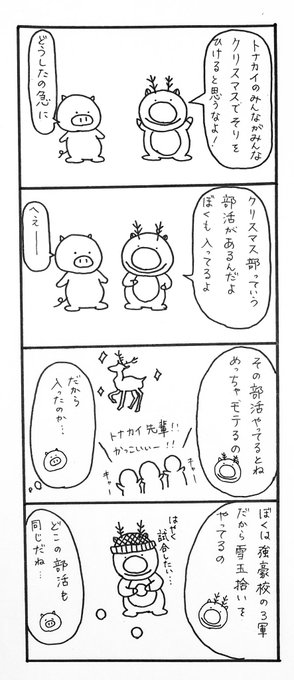 トナカイのみんながみんな
クリスマスでそりを
ひけると思うなよ!
どうしたの急に
クリスマス部っていう
部活があるんだよ
ぼくも入ってるよ
へえー
その部活やってるとね
めっちゃモテるの
トナカイ先輩!!
かっこいいー!!
キャー
キャー
だから
入ったのか…
ぼくは強豪校の3軍
だから雪玉拾いを
やってるの
はやく
試合したい…
どこの部活も
同じだね…